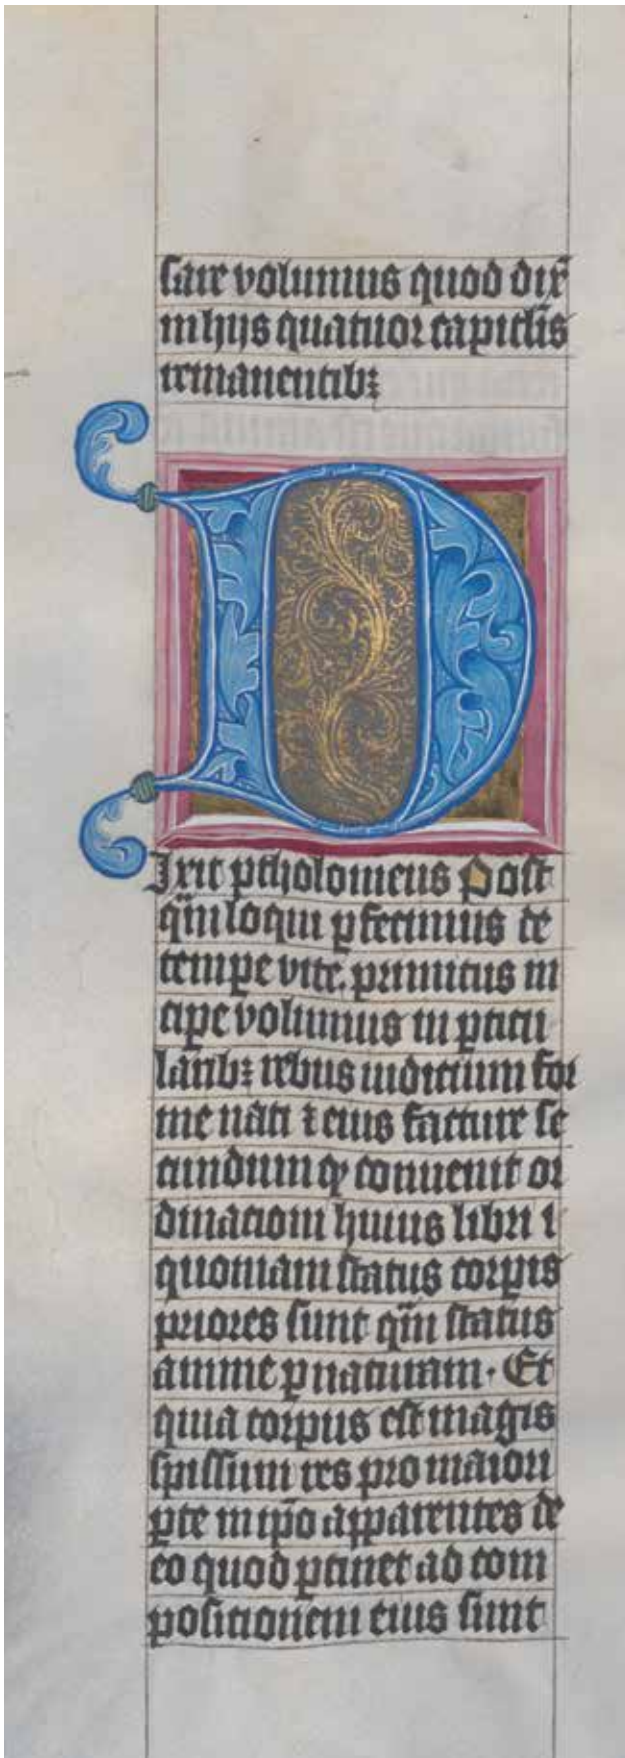 sare volumus quod dix̄
in hijs quatuor capitl̄is
remanentibꝫ
D
Ixit ptholomeus Post
qm̄ loqui ꝑfecimus de
temꝑe vite. primitus in
ciꝑe volumus in ꝑticu
larıbꝫ rebus iudicium for
me nati ⁊ eius facture se
cundum qꝫ conuenit or
dinacioni huius libri ⁊
quoniam status corꝑis
priores sunt qm̄ status
anime ꝑ naturam. Et
quia corpus est magis
spissum res pro maiori
ꝑte in ip̄o apparentes de
eo quod ꝑtinet ad com
positionem eius sunt